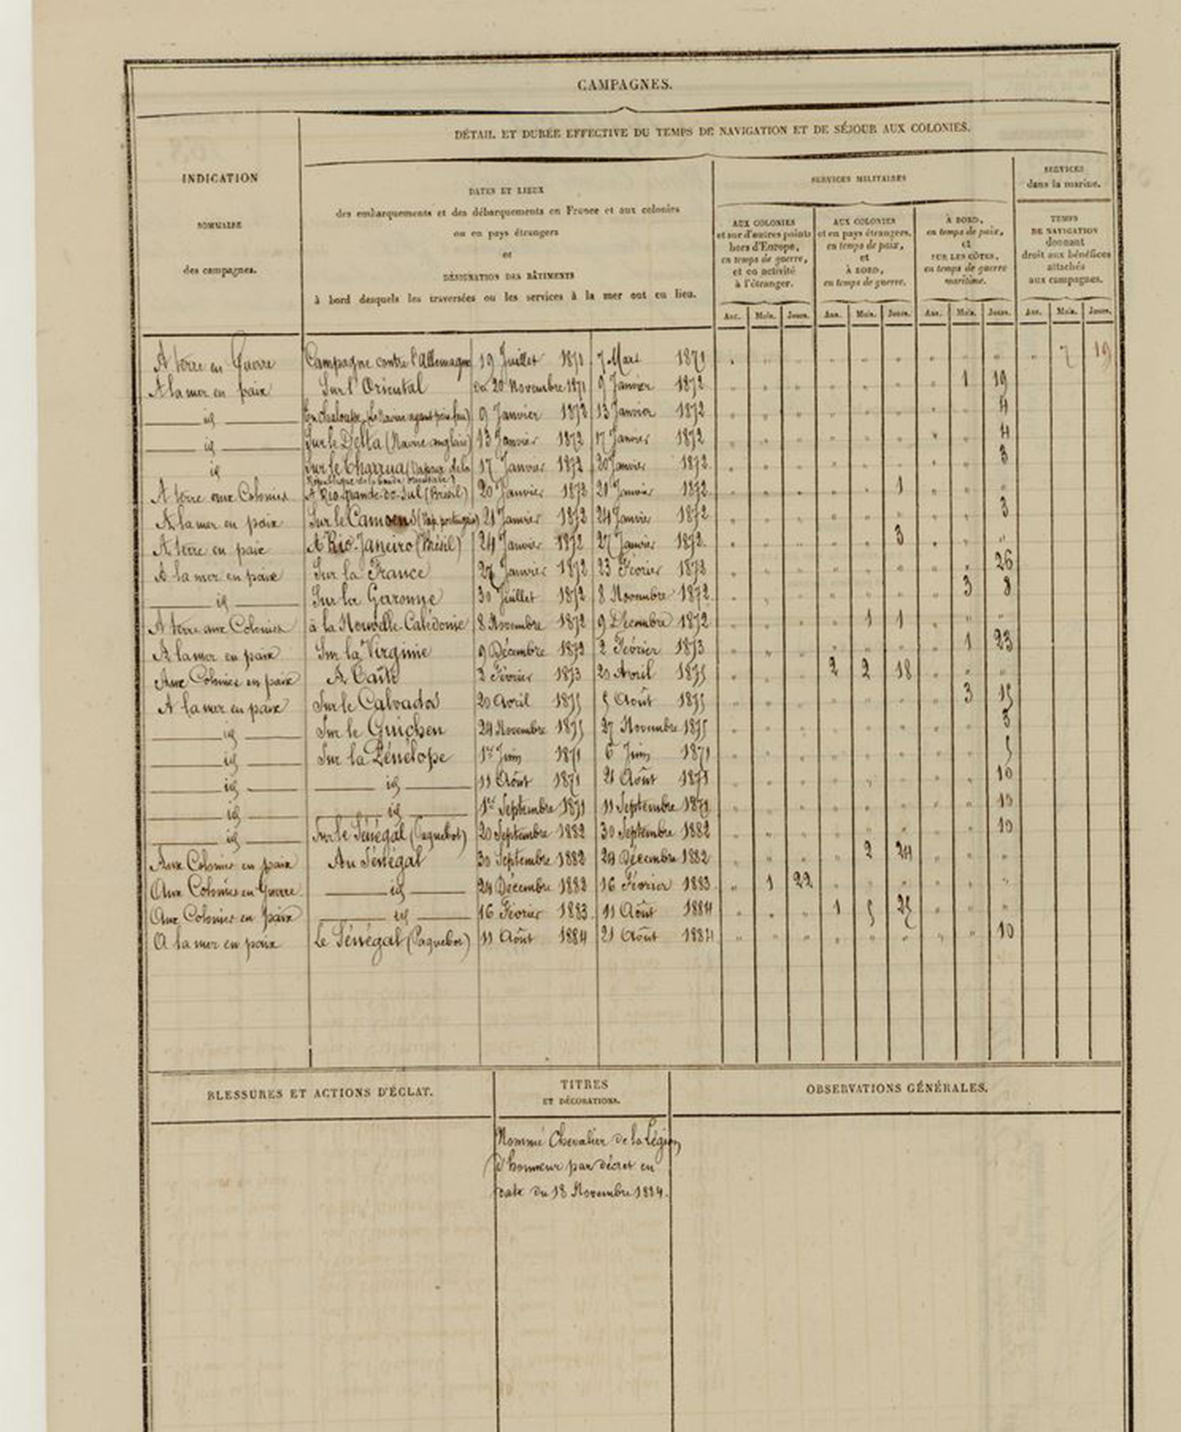 CAMPAGNES.
DÉTAIL ET DURÉE EFFECTIVE DU TEMPS DE NAVIGATION ET DE SÉJOUR AUX COLONIES.
INDICATION
SOMMAIRE
des campagnes.
DATES ET LIEUX
des embarquements et des débarquements en France et aux colonies
ou en pays étrangers
et
DÉSIGNATION DES BÂTIMENTS
à bord desquels les traversées ou les services à la mer ont eu lieu.
SERVICES MILITAIRES
SERVICES
dans la marine.
AUX COLONIES
et sur d'autres points
hors d'Europe,
en temps de guerre,
et en activité
à l'étranger.
AUX COLONIES
et en pays étrangers,
en temps de paix,
et
À BORD,
en temps de guerre.
À BORD,
en temps de paix,
et
SUR LES CÔTES,
en temps de guerre
maritime.
TEMPS
DE NAVIGATION
donnant
droit aux bénéfices
attachés
aux campagnes.
Ans. Mois. Jours. Ans. Mois. Jours. Ans. Mois. Jours. Ans. Mois. Jours.
A terre en Guerre Campagne contre l'Allemagne 19 Juillet 7 Mars 1871 7 19
A la mer en paix Sur l'Oriental du 20 Novembre 1871 9 Janvier 1872 1 19
id En chaloupe 9 Janvier 1872 13 Janvier 1872 4
id Sur le Delta (Navire anglais) 13 Janvier 1872 17 Janvier 1872 4
id Sur le (Vapeur de la 17 Janvier 1872 20 Janvier 1872 3
République de la bande orientale)
A terre aux Colonies A Rio-grande-do-Sul (Brésil) 20 Janvier 1872 21 Janvier 1872 1
A la mer en paix Sur le Camoens (Vap. portugais) 21 Janvier 1872 24 Janvier 1872 3
A terre en paix A Rio-Janeiro (Brésil) 24 Janvier 1872 27 Janvier 1872 3
A la mer en paix Sur la France 27 Janvier 1872 23 Février 1872 26
id Sur la Garonne 30 Juillet 1872 8 Novembre 1872 3 8
A terre aux Colonies à la Nouvelle-Calédonie 8 Novembre 1872 9 Décembre 1872 1 1
A la mer en paix Sur la Virginie 9 Décembre 1872 2 Février 1873 1 23
Aux Colonies en paix A Taïti 2 Février 1873 20 Avril 1875 2 2 18
A la mer en paix Sur le Calvados 20 Avril 1875 5 Août 1875 3 15
id Sur le Guichen 24 Novembre 1875 27 Novembre 1875 3
id Sur la Pénélope 1er Juin 1871 6 Juin 1871 5
id id 11 Août 1871 21 Août 1871 10
id id 1er Septembre 1871 11 Septembre 1871 10
id Sur le Sénégal (Paquebot) 20 Septembre 1882 30 Septembre 1882 10
Aux Colonies en paix Au Sénégal 30 Septembre 1882 24 Décembre 1882 2 24
Aux Colonies en Guerre id 24 Décembre 1882 16 Février 1883 1 22
Aux Colonies en paix id 16 Février 1883 11 Août 1884 1 5 25
A la mer en paix Le Sénégal (Paquebot) 11 Août 1884 21 Août 1884 10
BLESSURES ET ACTIONS D'ÉCLAT.
TITRES
ET DÉCORATIONS.
OBSERVATIONS GÉNÉRALES.
Nommé Chevalier de la Légion
d'honneur par décret en
date du 18 Novembre 1884.